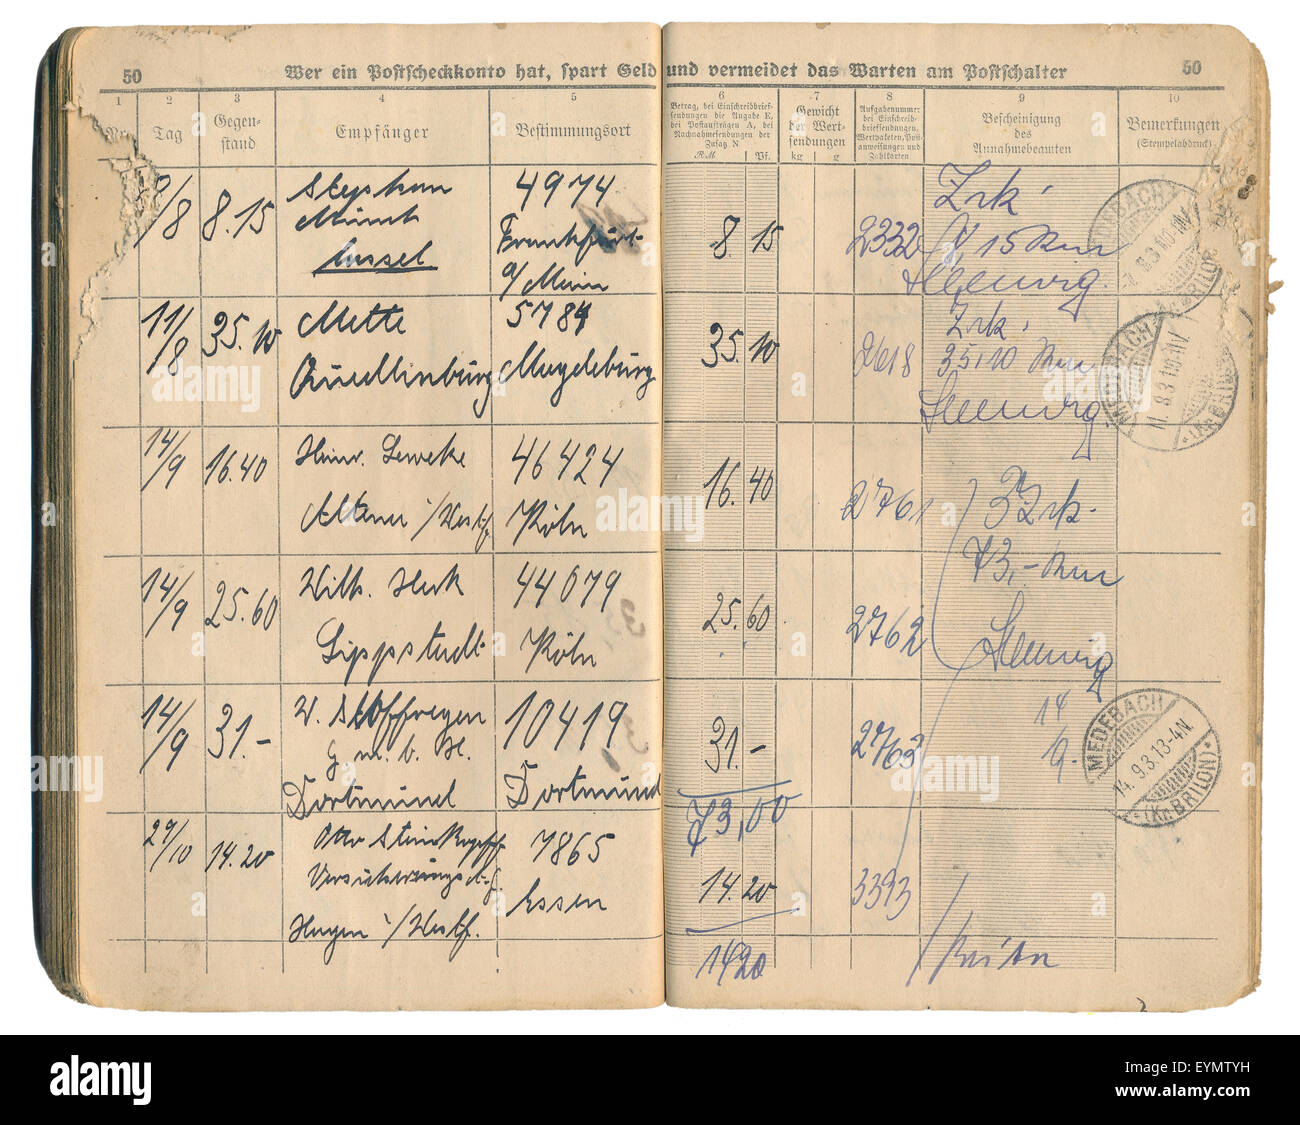 50 Wer ein Postscheckkonto hat, spart Geld und vermeidet das Warten am Postschalter 50
1 2 3 4 5 6 7 8 9 10
Nr. Tag Gegen-
stand Empfänger Bestimmungsort
Betrag, bei Einschreibbrief-
sendungen die Angabe E,
bei Postaufträgen A, bei
Nachnahmesendungen der
Zusatz N
RM Pf.
Gewicht
der Wert-
sendungen
kg g
Aufgabenummer
bei Einschreib-
briefsendungen,
Wertpaketen, Post-
anweisungen und
Zahlkarten
Bescheinigung
des
Annahmebeamten
Bemerkungen
(Stempelabdruck)
/8 8.15 Stephan 4974 8. 15 2332 Zrk.
Münch Frankfurt 15 Rm
Cassel a/Main
11/8 35.10 Mette 5784 35. 10 2618 Zrk.
Quedlinburg Magdeburg 35,10 Rm
MEDEBACH
(Kr. BRILON)
14/9 16.40 Heinr. Leweke 46424 16. 40 2761 3 Zrk.
Altena i/Westf. Köln 73,- Rm
14/9 25.60 Wilh. Hurk 44079 25. 60 2762
Lippstadt Köln
14/9 31.- W. Stoffregen 10419 31.- 2763 14/9.
G. m. b. H.
Dortmund Dortmund
73,00
MEDEBACH
14. 9.3.13-4N.
(Kr. BRILON)
29/10 14.20 Otto Steinkopff 7865 14. 20 3393
Versicherungs A.G. Essen
Hagen i/Westf.
1420
alamy
Image ID: EYMTYH
www.alamy.com